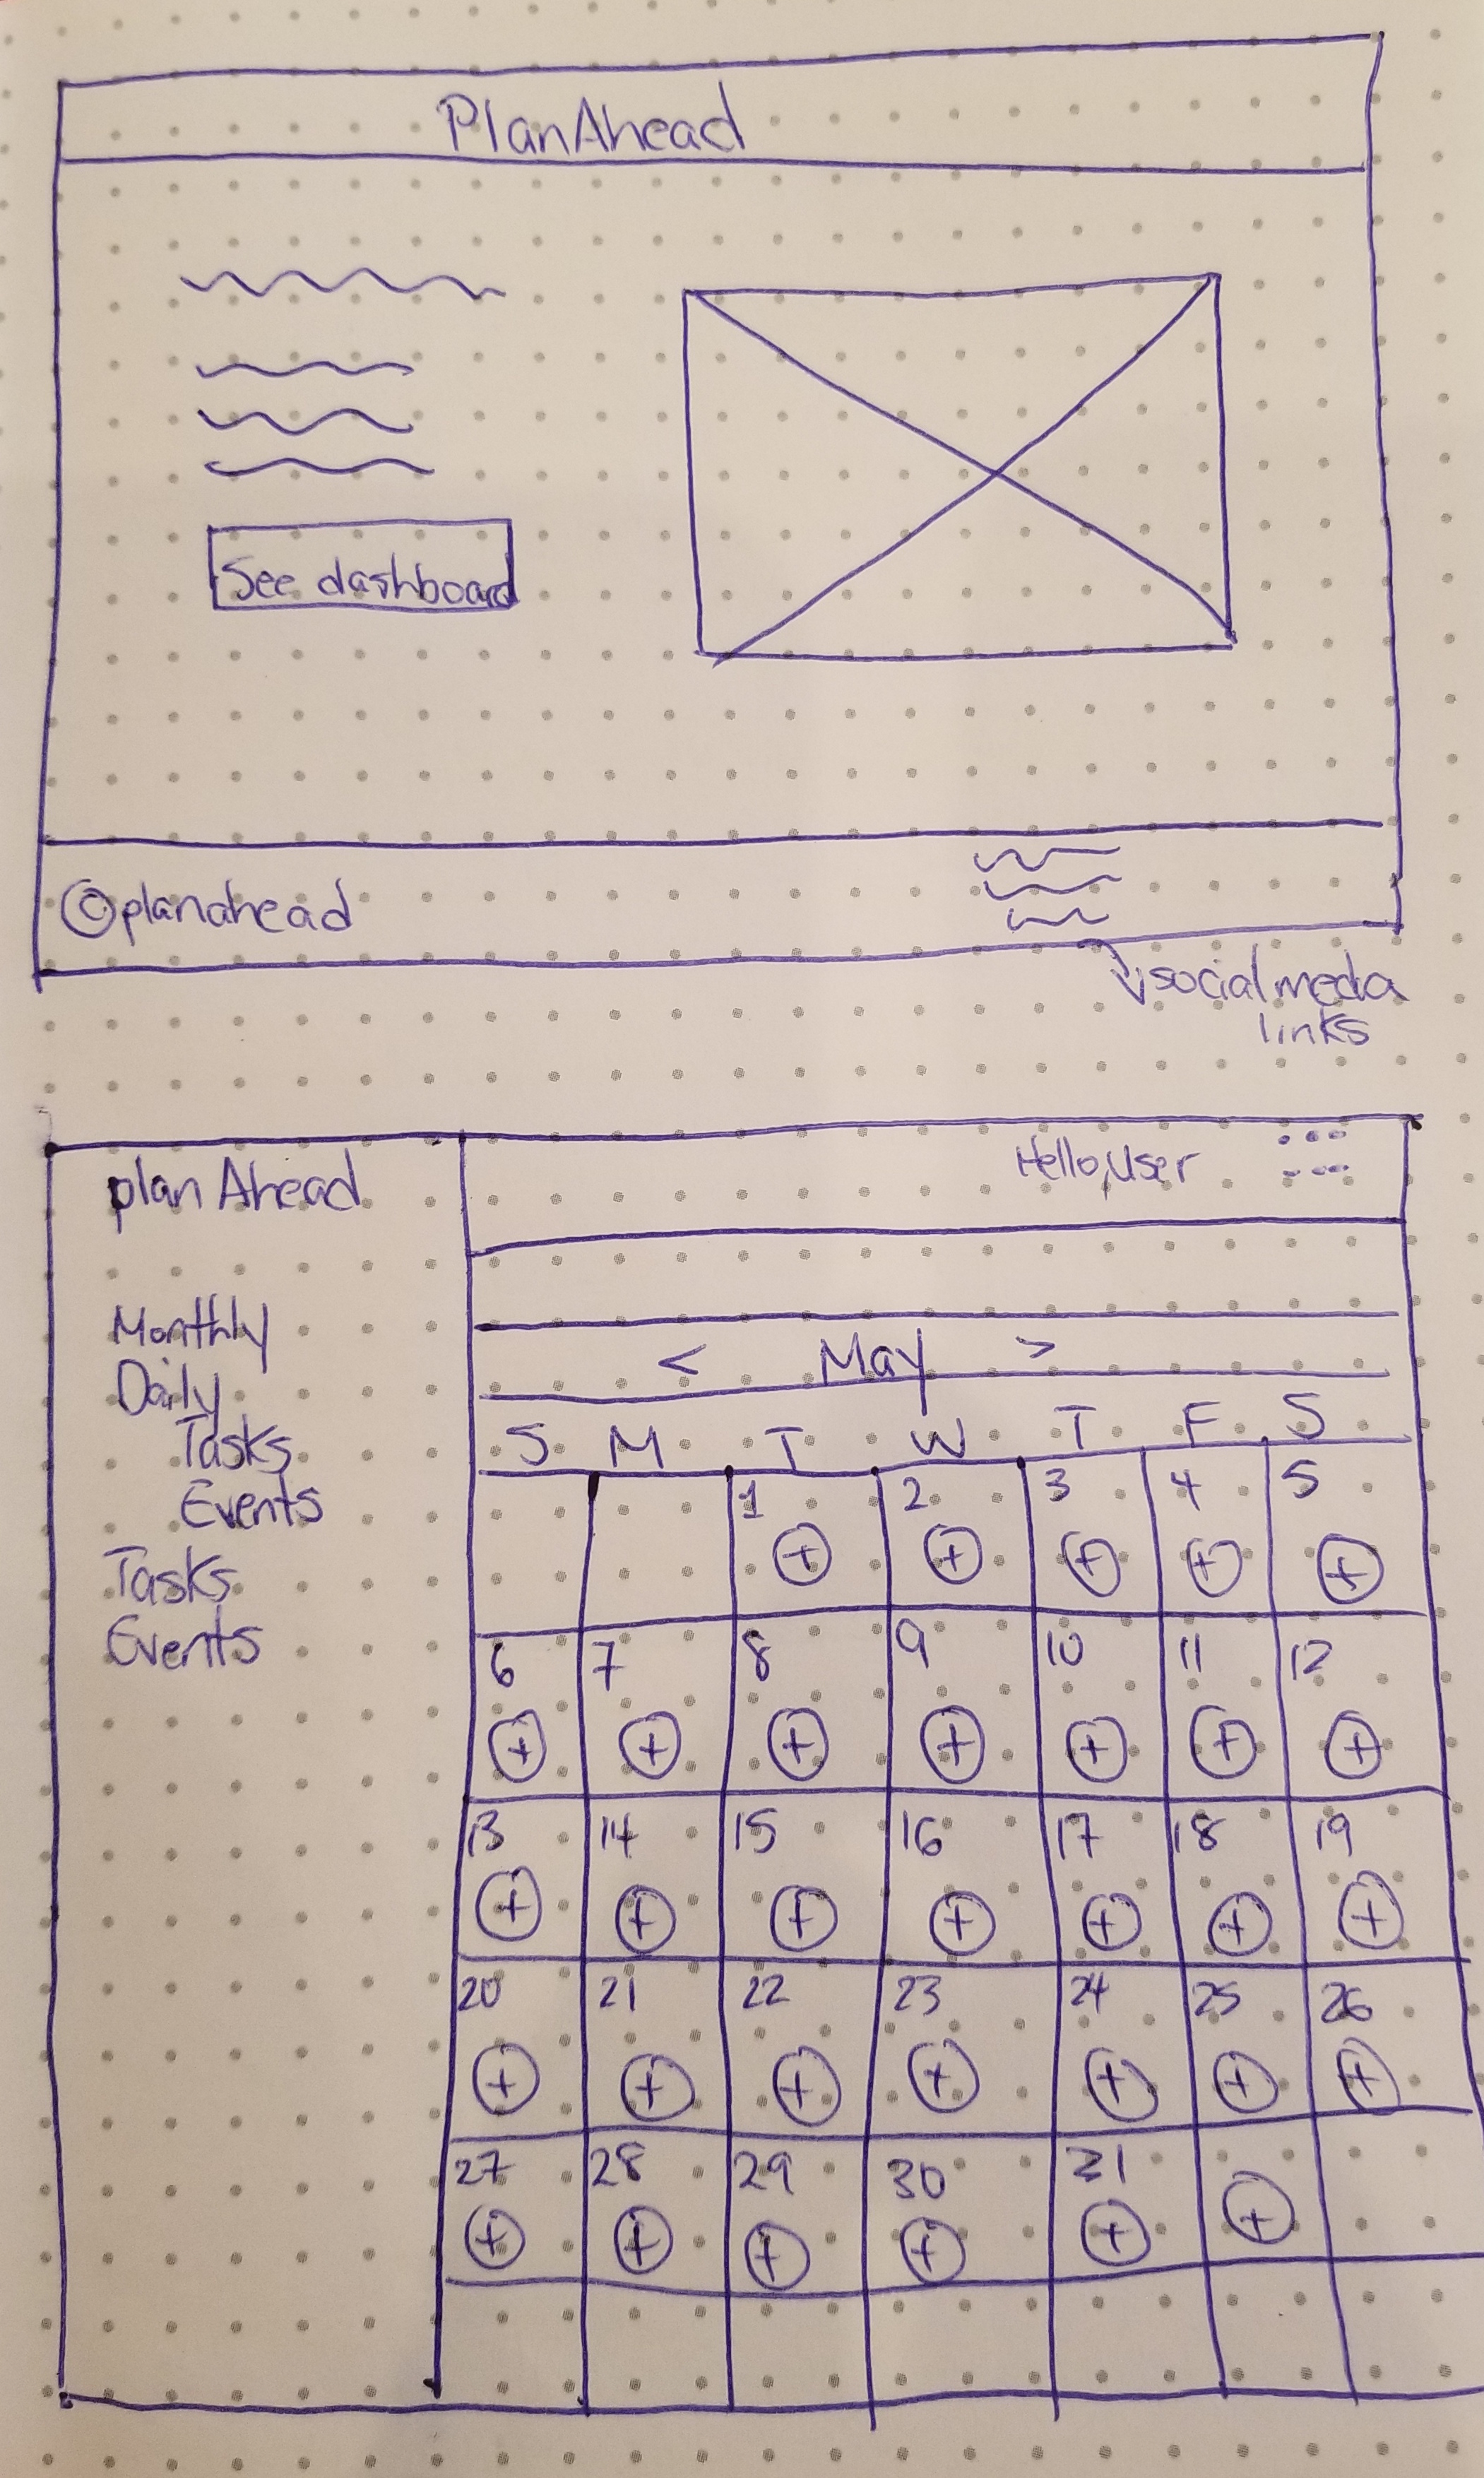 PlanAhead
See dashboard
© planahead
social media
links
plan Ahead
Hello, User
Monthly
Daily
Tasks
Events
Tasks
Events
< May >
S M T W T F S
1 2 3 4 5
+ + + + +
6 7 8 9 10 11 12
+ + + + + + +
13 14 15 16 17 18 19
+ + + + + + +
20 21 22 23 24 25 26
+ + + + + + +
27 28 29 30 31
+ + + + + +